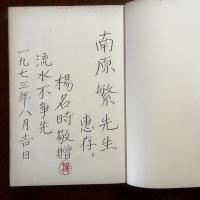 南原繁先生
惠存
楊名時敬贈
流水不争先
一九七三年八月吉日